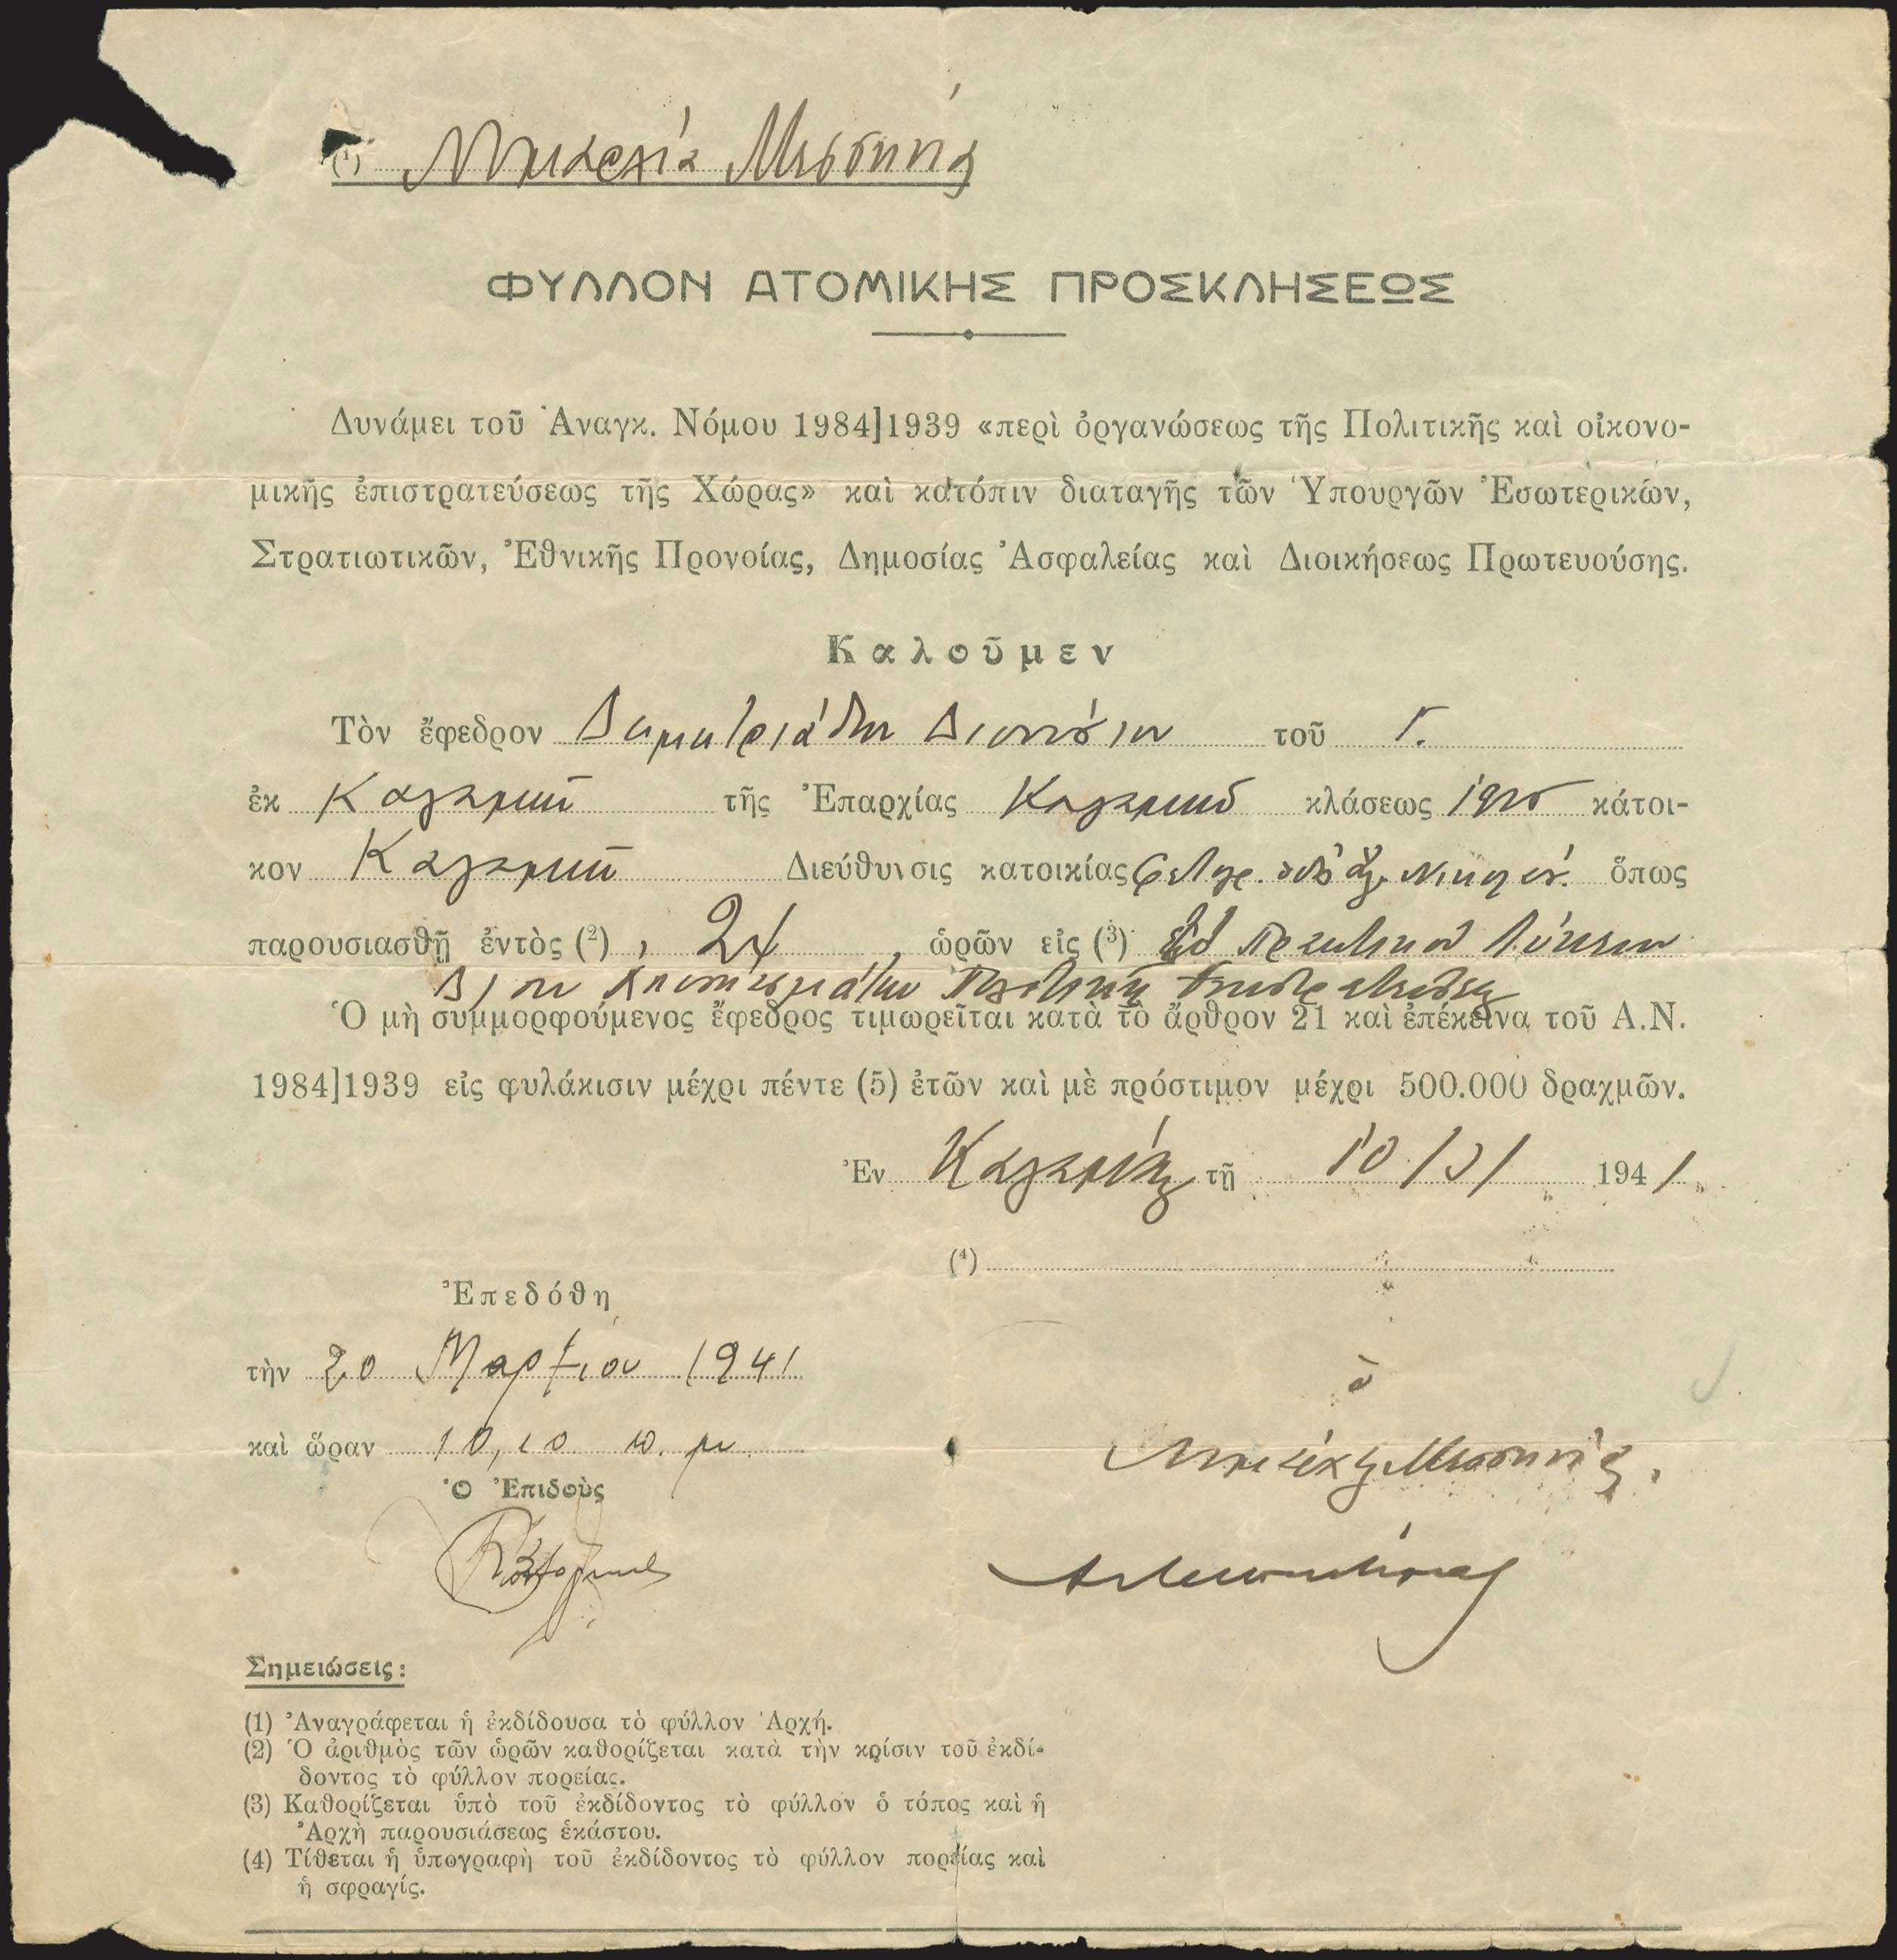 (¹) Νομαρχία Μεσσηνίας
ΦΥΛΛΟΝ ΑΤΟΜΙΚΗΣ ΠΡΟΣΚΛΗΣΕΩΣ
Δυνάμει τοῦ Ἀναγκ. Νόμου 1984]1939 «περὶ ὀργανώσεως τῆς Πολιτικῆς καὶ οἰκονο-
μικῆς ἐπιστρατεύσεως τῆς Χώρας» καὶ κατόπιν διαταγῆς τῶν Ὑπουργῶν Ἐσωτερικῶν,
Στρατιωτικῶν, Ἐθνικῆς Προνοίας, Δημοσίας Ἀσφαλείας καὶ Διοικήσεως Πρωτευούσης.
Καλοῦμεν
Τὸν ἔφεδρον Δημητριάδην Διονύσιον τοῦ Γ.
ἐκ Καλαμῶν τῆς Ἐπαρχίας Καλαμῶν κλάσεως κάτοι-
κον Καλαμῶν Διεύθυνσις κατοικίας ὅπως
παρουσιασθῇ ἐντὸς (²) 24 ὡρῶν εἰς (³) Πρακτικὸν Λύκειον
Πολιτικῆς Ἐπιστρατεύσεως
Ὁ μὴ συμμορφούμενος ἔφεδρος τιμωρεῖται κατὰ τὸ ἄρθρον 21 καὶ ἐπέκεινα τοῦ Α.Ν.
1984]1939 εἰς φυλάκισιν μέχρι πέντε (5) ἐτῶν καὶ μὲ πρόστιμον μέχρι 500.000 δραχμῶν.
Ἐν Καλάμαις τῇ 10/3/ 1941
(⁴)
Ἐπεδόθη
τὴν 20 Μαρτίου 1941
καὶ ὥραν 10,10 π. μ.
Ὁ Ἐπιδοὺς
ὁ
Νομάρχης Μεσσηνίας.
Σημειώσεις:
(1) Ἀναγράφεται ἡ ἐκδίδουσα τὸ φύλλον Ἀρχή.
(2) Ὁ ἀριθμὸς τῶν ὡρῶν καθορίζεται κατὰ τὴν κρίσιν τοῦ ἐκδί-
δοντος τὸ φύλλον πορείας.
(3) Καθορίζεται ὑπὸ τοῦ ἐκδίδοντος τὸ φύλλον ὁ τόπος καὶ ἡ
Ἀρχὴ παρουσιάσεως ἑκάστου.
(4) Τίθεται ἡ ὑπογραφὴ τοῦ ἐκδίδοντος τὸ φύλλον πορείας καὶ
ἡ σφραγίς.